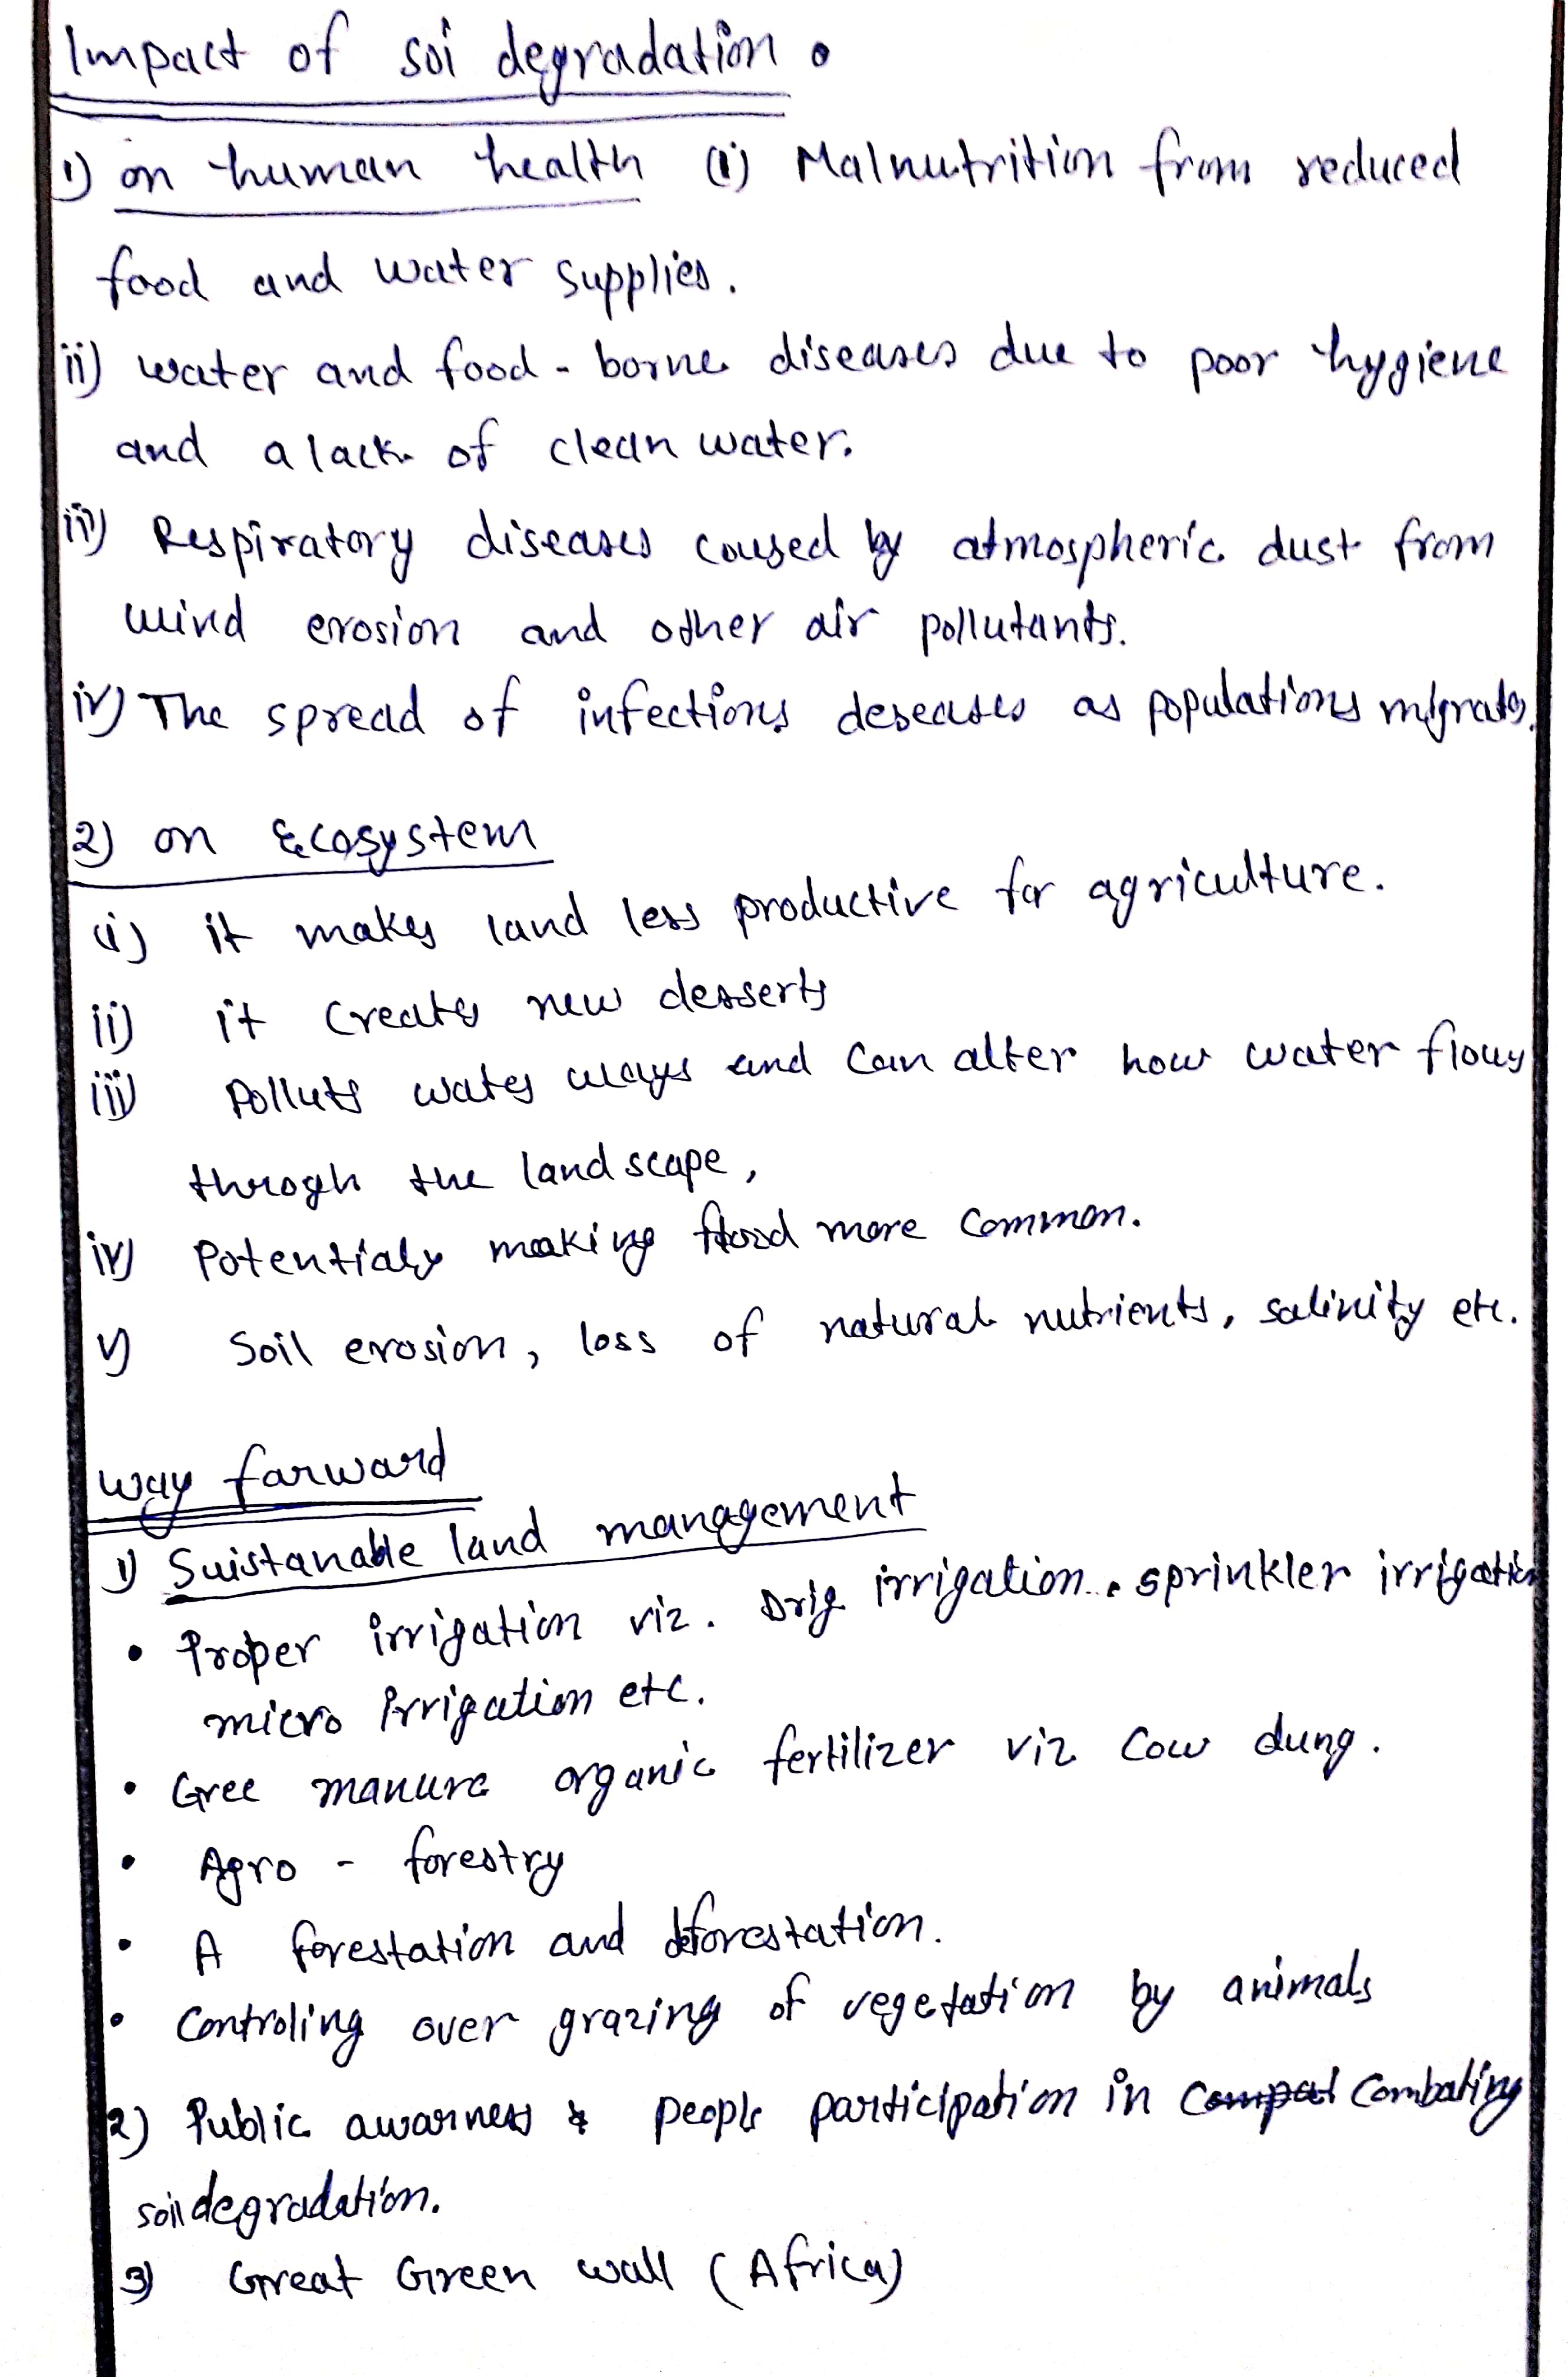 Impact of soi degradation.
1) on human health (i) Malnutrition from reduced
food and water supplies.
ii) water and food - borne diseases due to poor hygiene
and a lack of clean water.
iii) Respiratory diseases caused by atmospheric dust from
wind erosion and other air pollutants.
iv) The spread of infections deseases as populations migrates.
2) on Ecosystem
(i) it makes land less productive for agriculture.
ii) it creates new desserts
iii) Polluts wates ways and can alter how water flows
throgh the landscape,
iv) Potentialy making flood more common.
v) Soil erosion, loss of natural nutrients, salinity etc.
way farward
1) Suistanable land management
• Proper irrigation viz. Drip irrigation. sprinkler irrigation
micro irrigation etc.
• Gree manure organic fertilizer viz cow dung.
• Agro - forestry
• A forestation and deforestation.
• Controling over grazing of vegetation by animals
2) Public awarness & people participation in Combating
soil degradation.
3) Great Green wall (Africa)